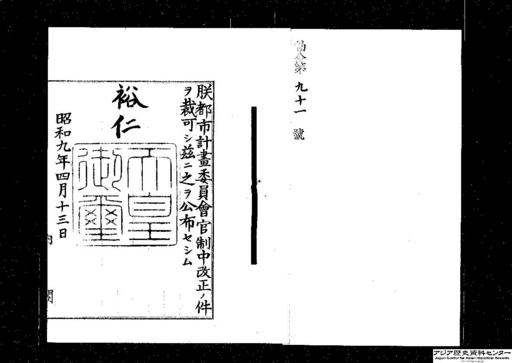 勅令第九十一號
朕都市計畫委員會官制中改正ノ件
ヲ裁可シ茲ニ之ヲ公布セシム
裕仁
天皇御璽
昭和九年四月十三日
内閣
アジア歴史資料センター
Japan Center for Asian Historical Records